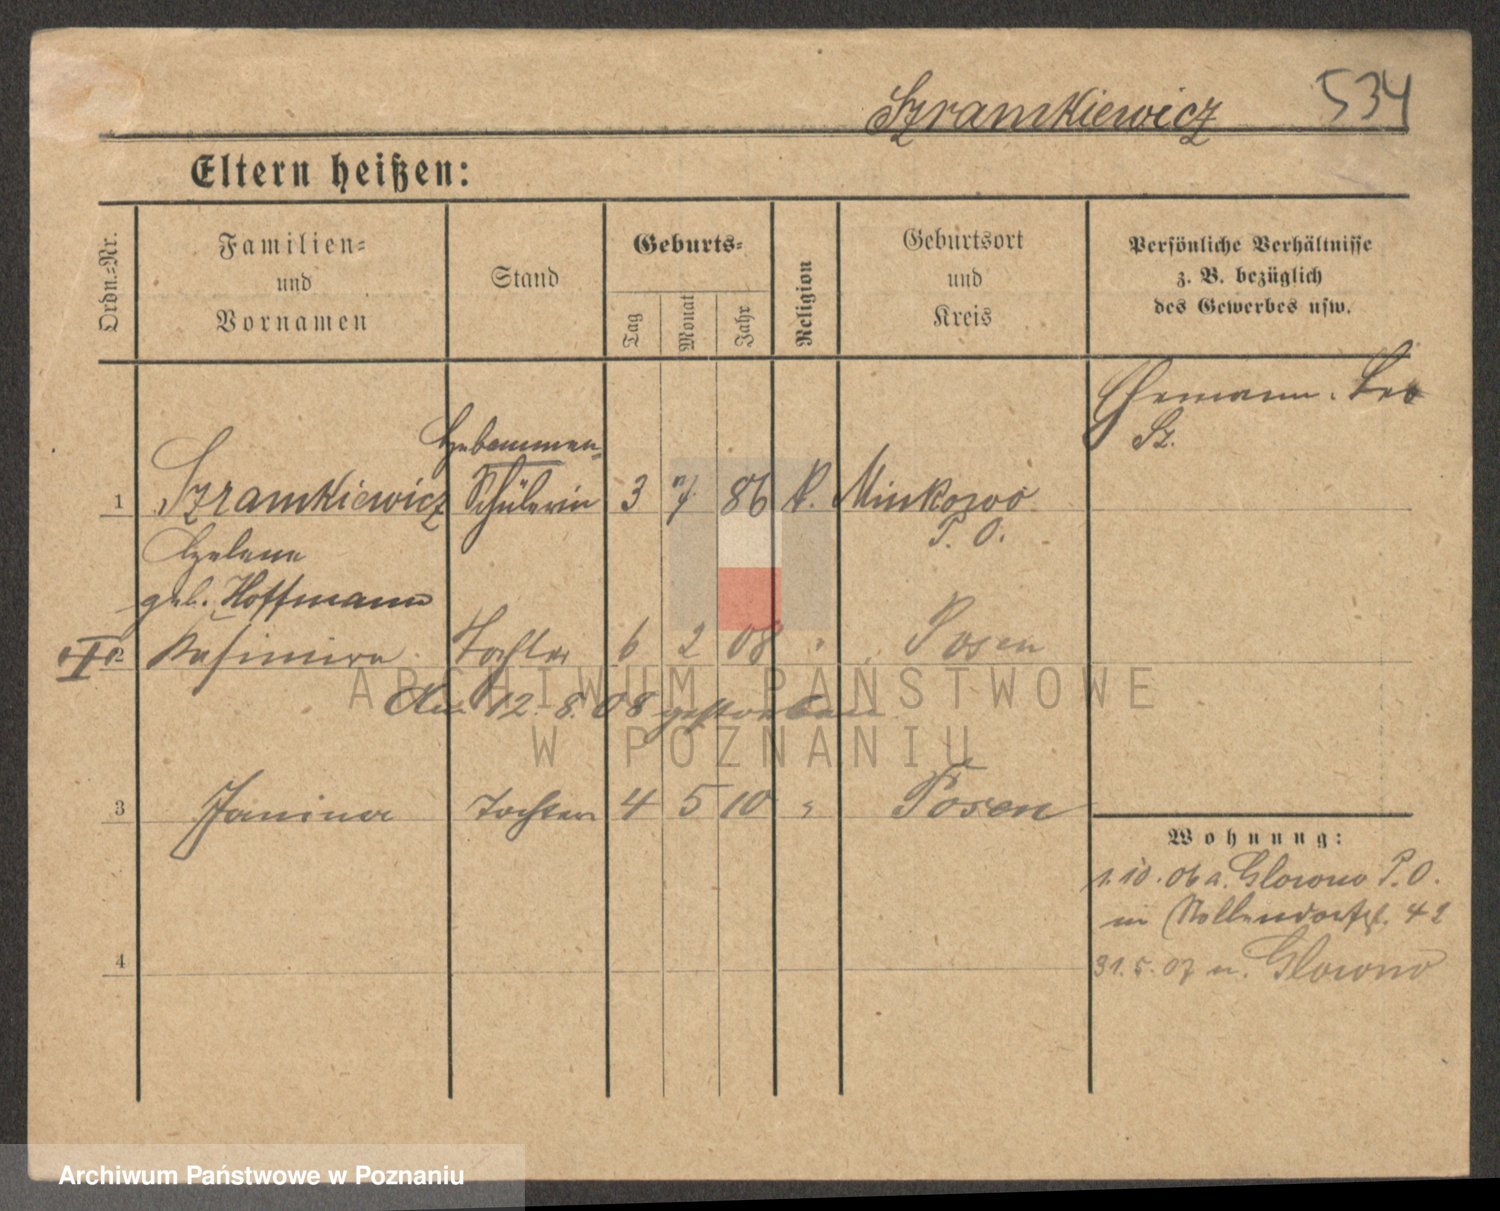 Szramkiewicz 534
Eltern heißen:
Ordn.=Nr.
Familien=
und
Vornamen
Stand
Geburts=
Tag
Monat
Jahr
Religion
Geburtsort
und
Kreis
Persönliche Verhältnisse
z. B. bezüglich
des Gewerbes usw.
Ehemann. Leo
Sz.
Hebammen-
1 Szramkiewicz Schülerin 3 7 86 k. Minkowo
P. O.
Helene
geb. Hoffmann
2 Kasimira Tochter 6 2 08 " Posen
Am 12. 8. 08 gestorben
3 Janina Tochter 4 5 10 " Posen
Wohnung:
1. 10. 06 a. Glowno P. O.
in Nollendorfst. 42
4
31. 5. 07 n. Glowno
ARCHIWUM PAŃSTWOWE
W POZNANIU
Archiwum Państwowe w Poznaniu